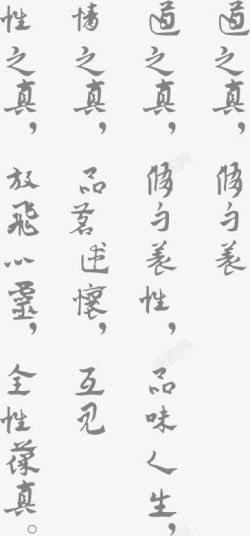 道之真，修身養
道之真，修身養性，品味人生，
情之真，品茗述懷，互见
性之真，放飛心靈，全性葆真。